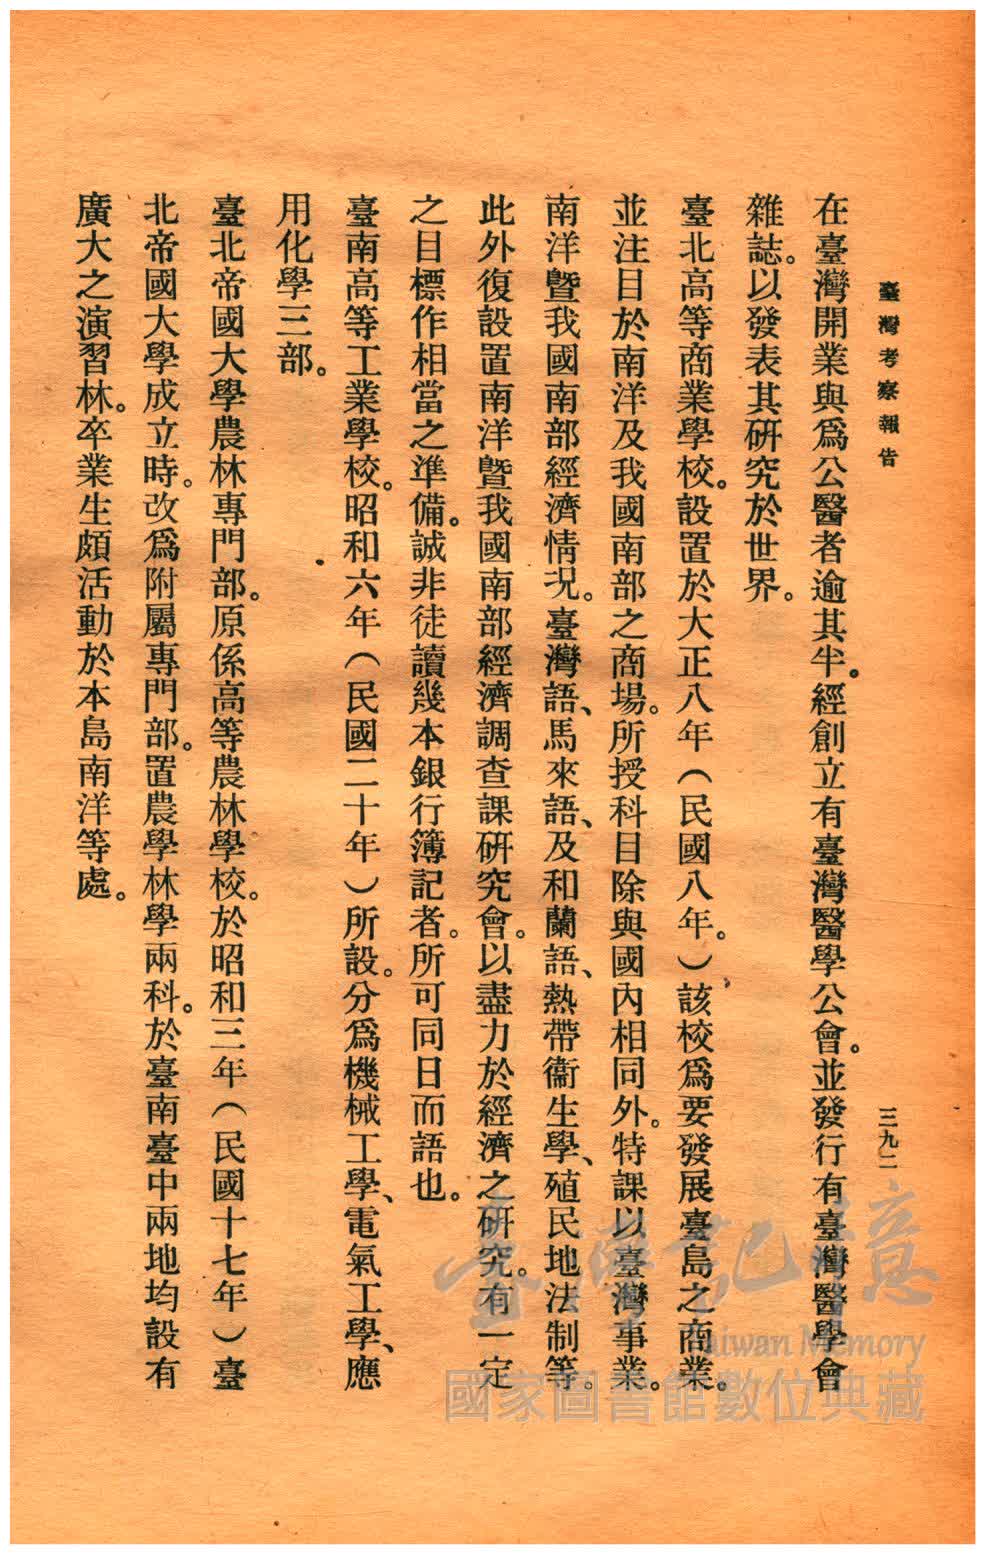 臺灣考察報告
三九二
在臺灣開業與爲公醫者逾其半。經創立有臺灣醫學公會。並發行有臺灣醫學會
雜誌。以發表其研究於世界。
臺北高等商業學校。設置於大正八年（民國八年。）該校爲要發展臺島之商業。
並注目於南洋及我國南部之商場。所授科目除與國內相同外。特課以臺灣事業。
南洋曁我國南部經濟情況。臺灣語、馬來語、及和蘭語、熱帶衞生學、殖民地法制等。
此外復設置南洋曁我國南部經濟調查課研究會。以盡力於經濟之研究。有一定
之目標作相當之準備。誠非徒讀幾本銀行簿記者。所可同日而語也。
臺南高等工業學校。昭和六年（民國二十年）所設。分爲機械工學、電氣工學、應
用化學三部。
臺北帝國大學農林專門部。原係高等農林學校。於昭和三年（民國十七年）臺
北帝國大學成立時。改爲附屬專門部。置農學林學兩科。於臺南臺中兩地均設有
廣大之演習林。卒業生頗活動於本島南洋等處。
臺灣記憶
Taiwan Memory
國家圖書館數位典藏